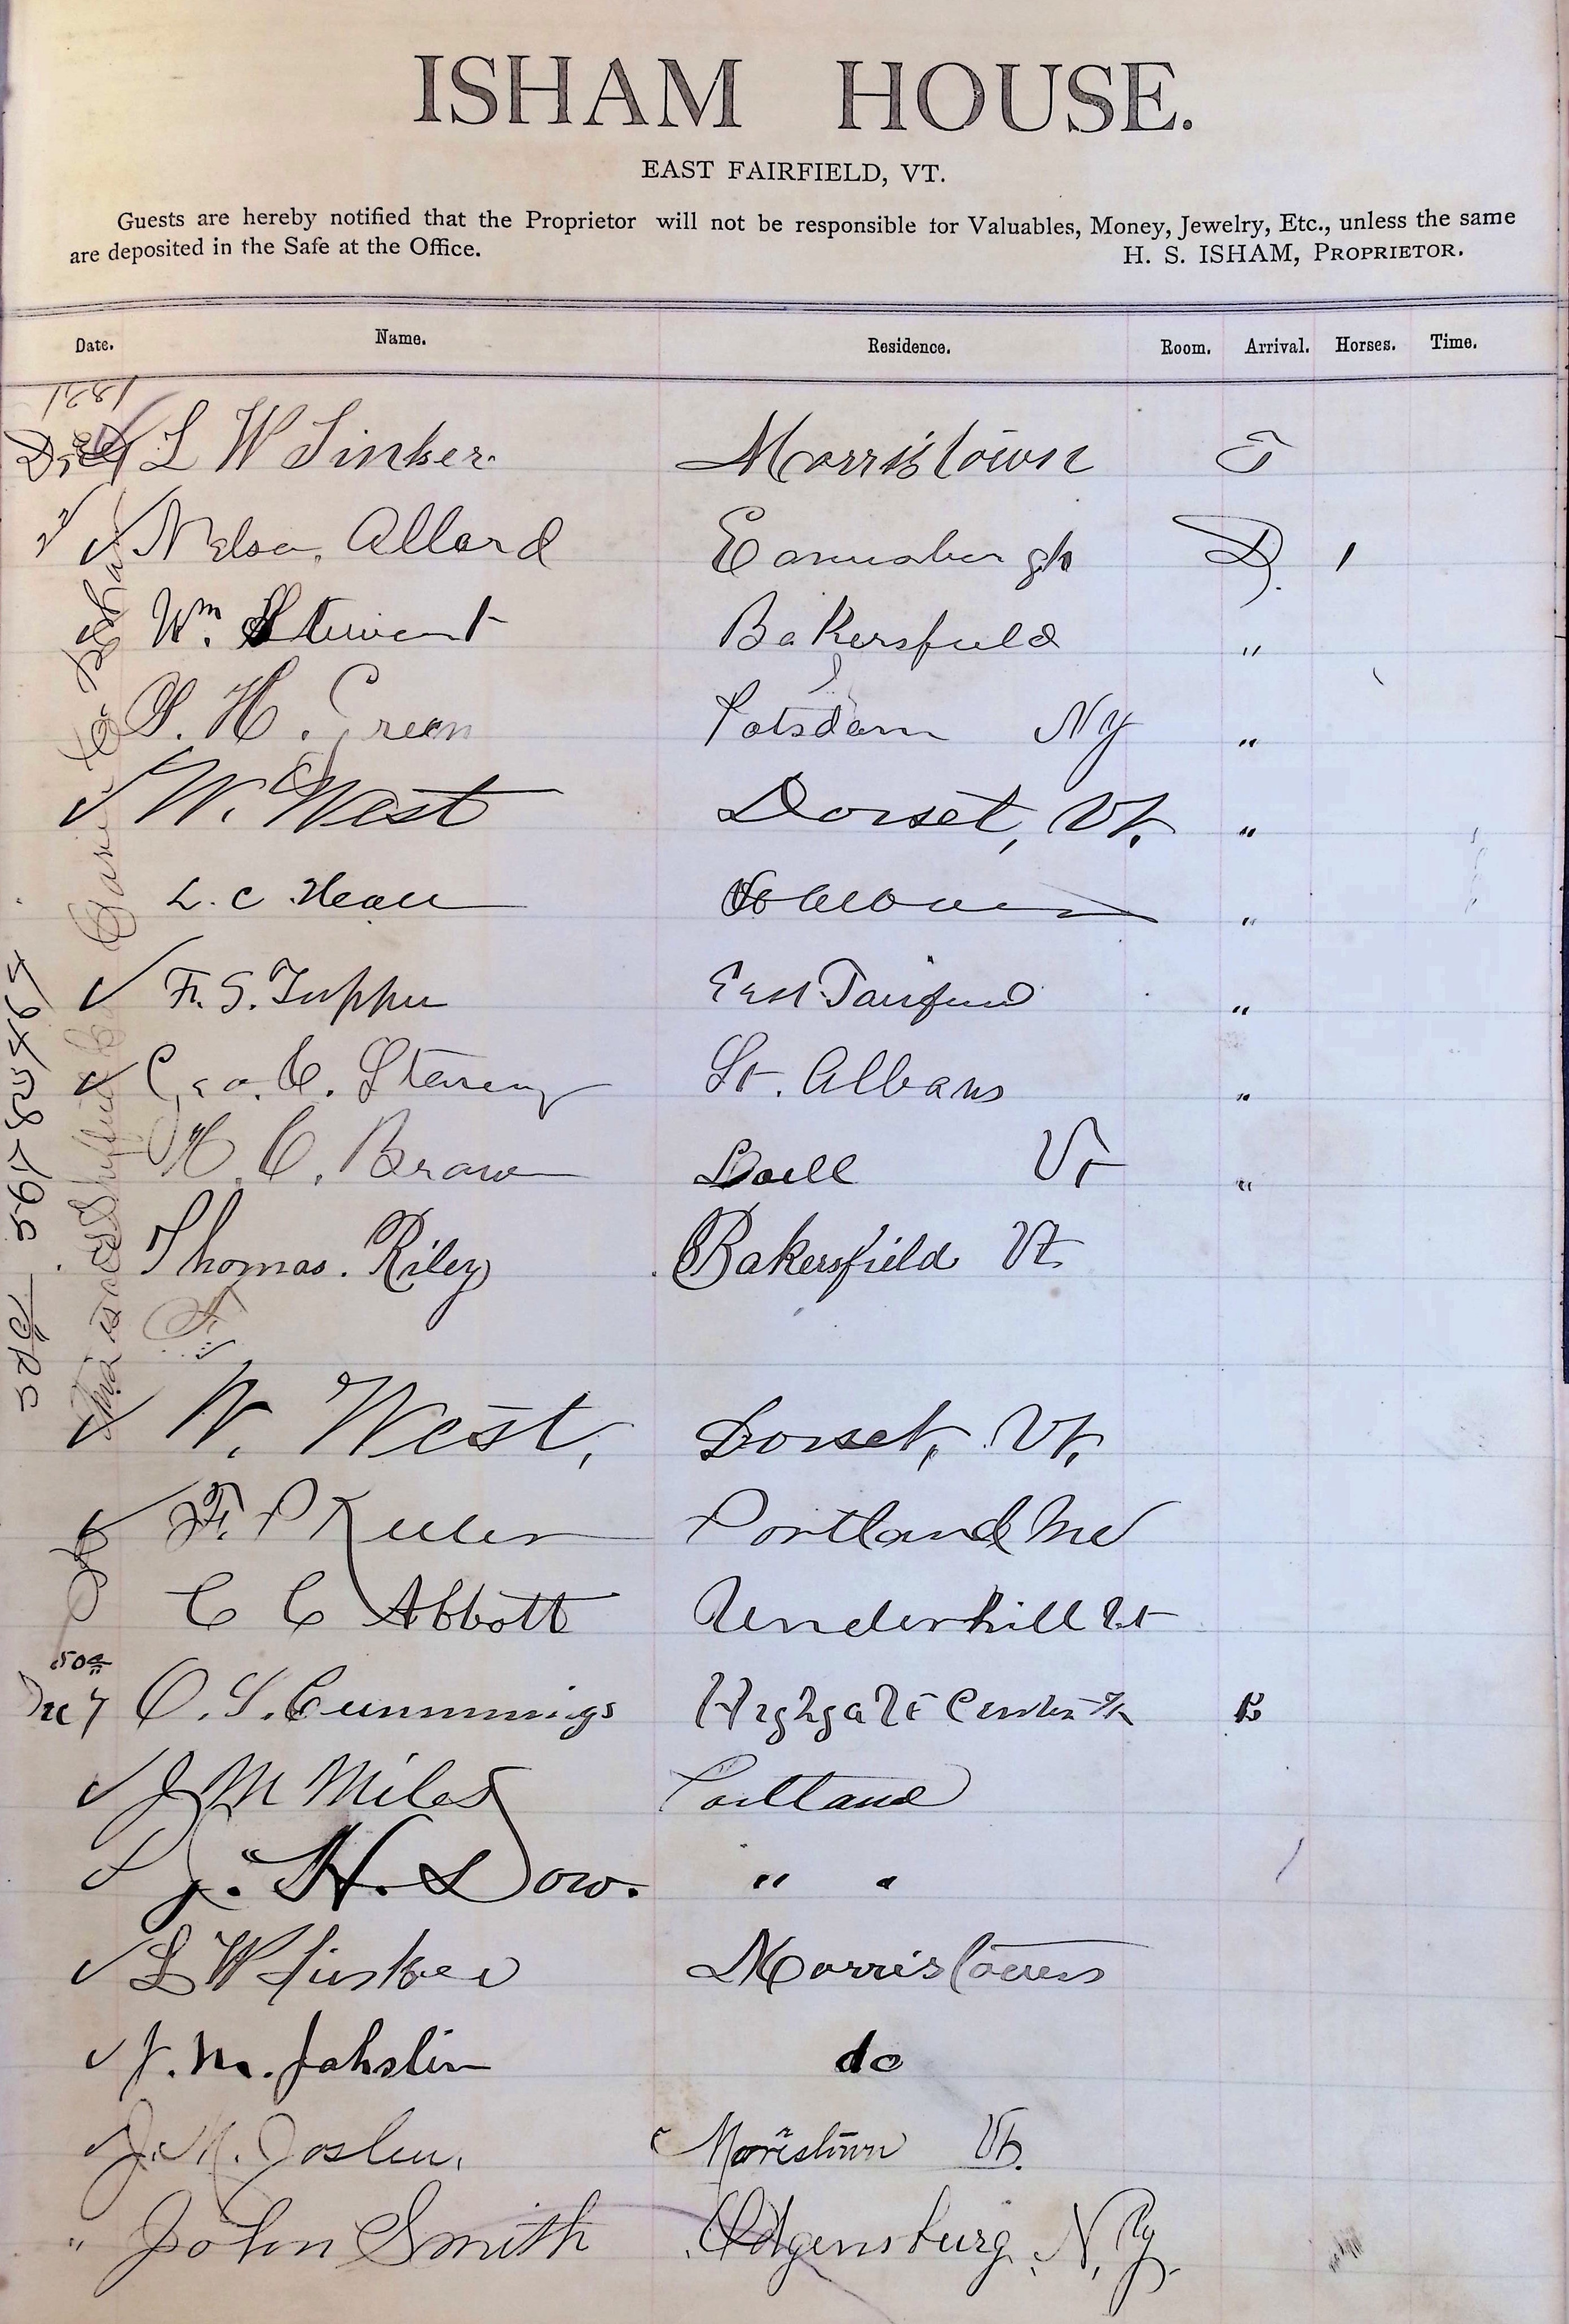 ISHAM HOUSE.
EAST FAIRFIELD, VT.
Guests are hereby notified that the Proprietor will not be responsible for Valuables, Money, Jewelry, Etc., unless the same
are deposited in the Safe at the Office. H. S. ISHAM, PROPRIETOR.
Date. Name. Residence. Room. Arrival. Horses. Time.
1881
L W Tinker Morristown
Allard D. 1
Wm. Stewart Bakersfield "
H. Green Potsdam NY "
W. West Dorset, Vt. "
L. C. "
F. S. Tupper East Fairfield "
Geo. C. St. Albans "
H. C. Brown Vt "
Thomas. Riley Bakersfield Vt
W. West, Dorset, Vt.
F. P. Portland Me
C C Abbott Underhill Vt
50c
Dec 7 O. S. Cummings Highgate Center Vt B
J M Miles Portland
J. H. Dow. " "
L W Tinker Morristown
J. M. Jahslin do
J. M. Joslin. Morristown Vt.
" John Smith Odgensburg, N. Y.